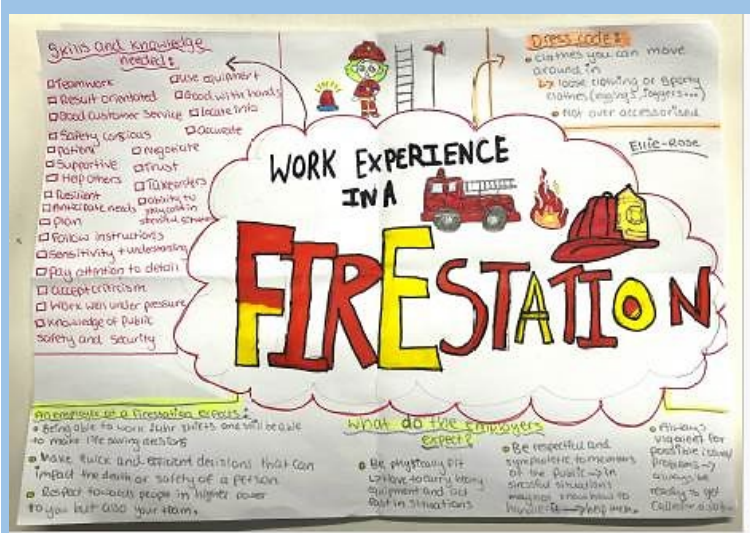 Skills and knowledge
needed:
Teamwork
Result orientated
Good customer service
Safety consious
patient
Supportive
Help others
Resilient
Anticipate needs
Plan
Follow instructions
Sensitivity + understanding
Pay attention to detail
accept criticism
Work well under pressure
Knowledge of Public
safety and security
Use equipment
Good with hands
locate info
accurate
negotiate
Trust
Take orders
ability to
stay calm in
stressful
Dress code:
clothes you can move
around in
loose clothing or sporty
clothes (leggings, joggers...)
Not over accessorised
Ellie-Rose
WORK EXPERIENCE
IN A
FIRESTATION
An employer of a firestation expects:
Being able to work shifts and still be able
to make life saving decisions
Make quick and efficient decisions that can
impact the death or safety of a person.
Respect towards people in higher power
to you but also your team.
What do the employers
expect?
Be physically fit
Have to carry heavy
equipment and act
fast in situations
Be respectful and
to members
of the public → in
stressful situations
may not know how to
→ help them.
Always
for
possible
problems →
always be
ready to get